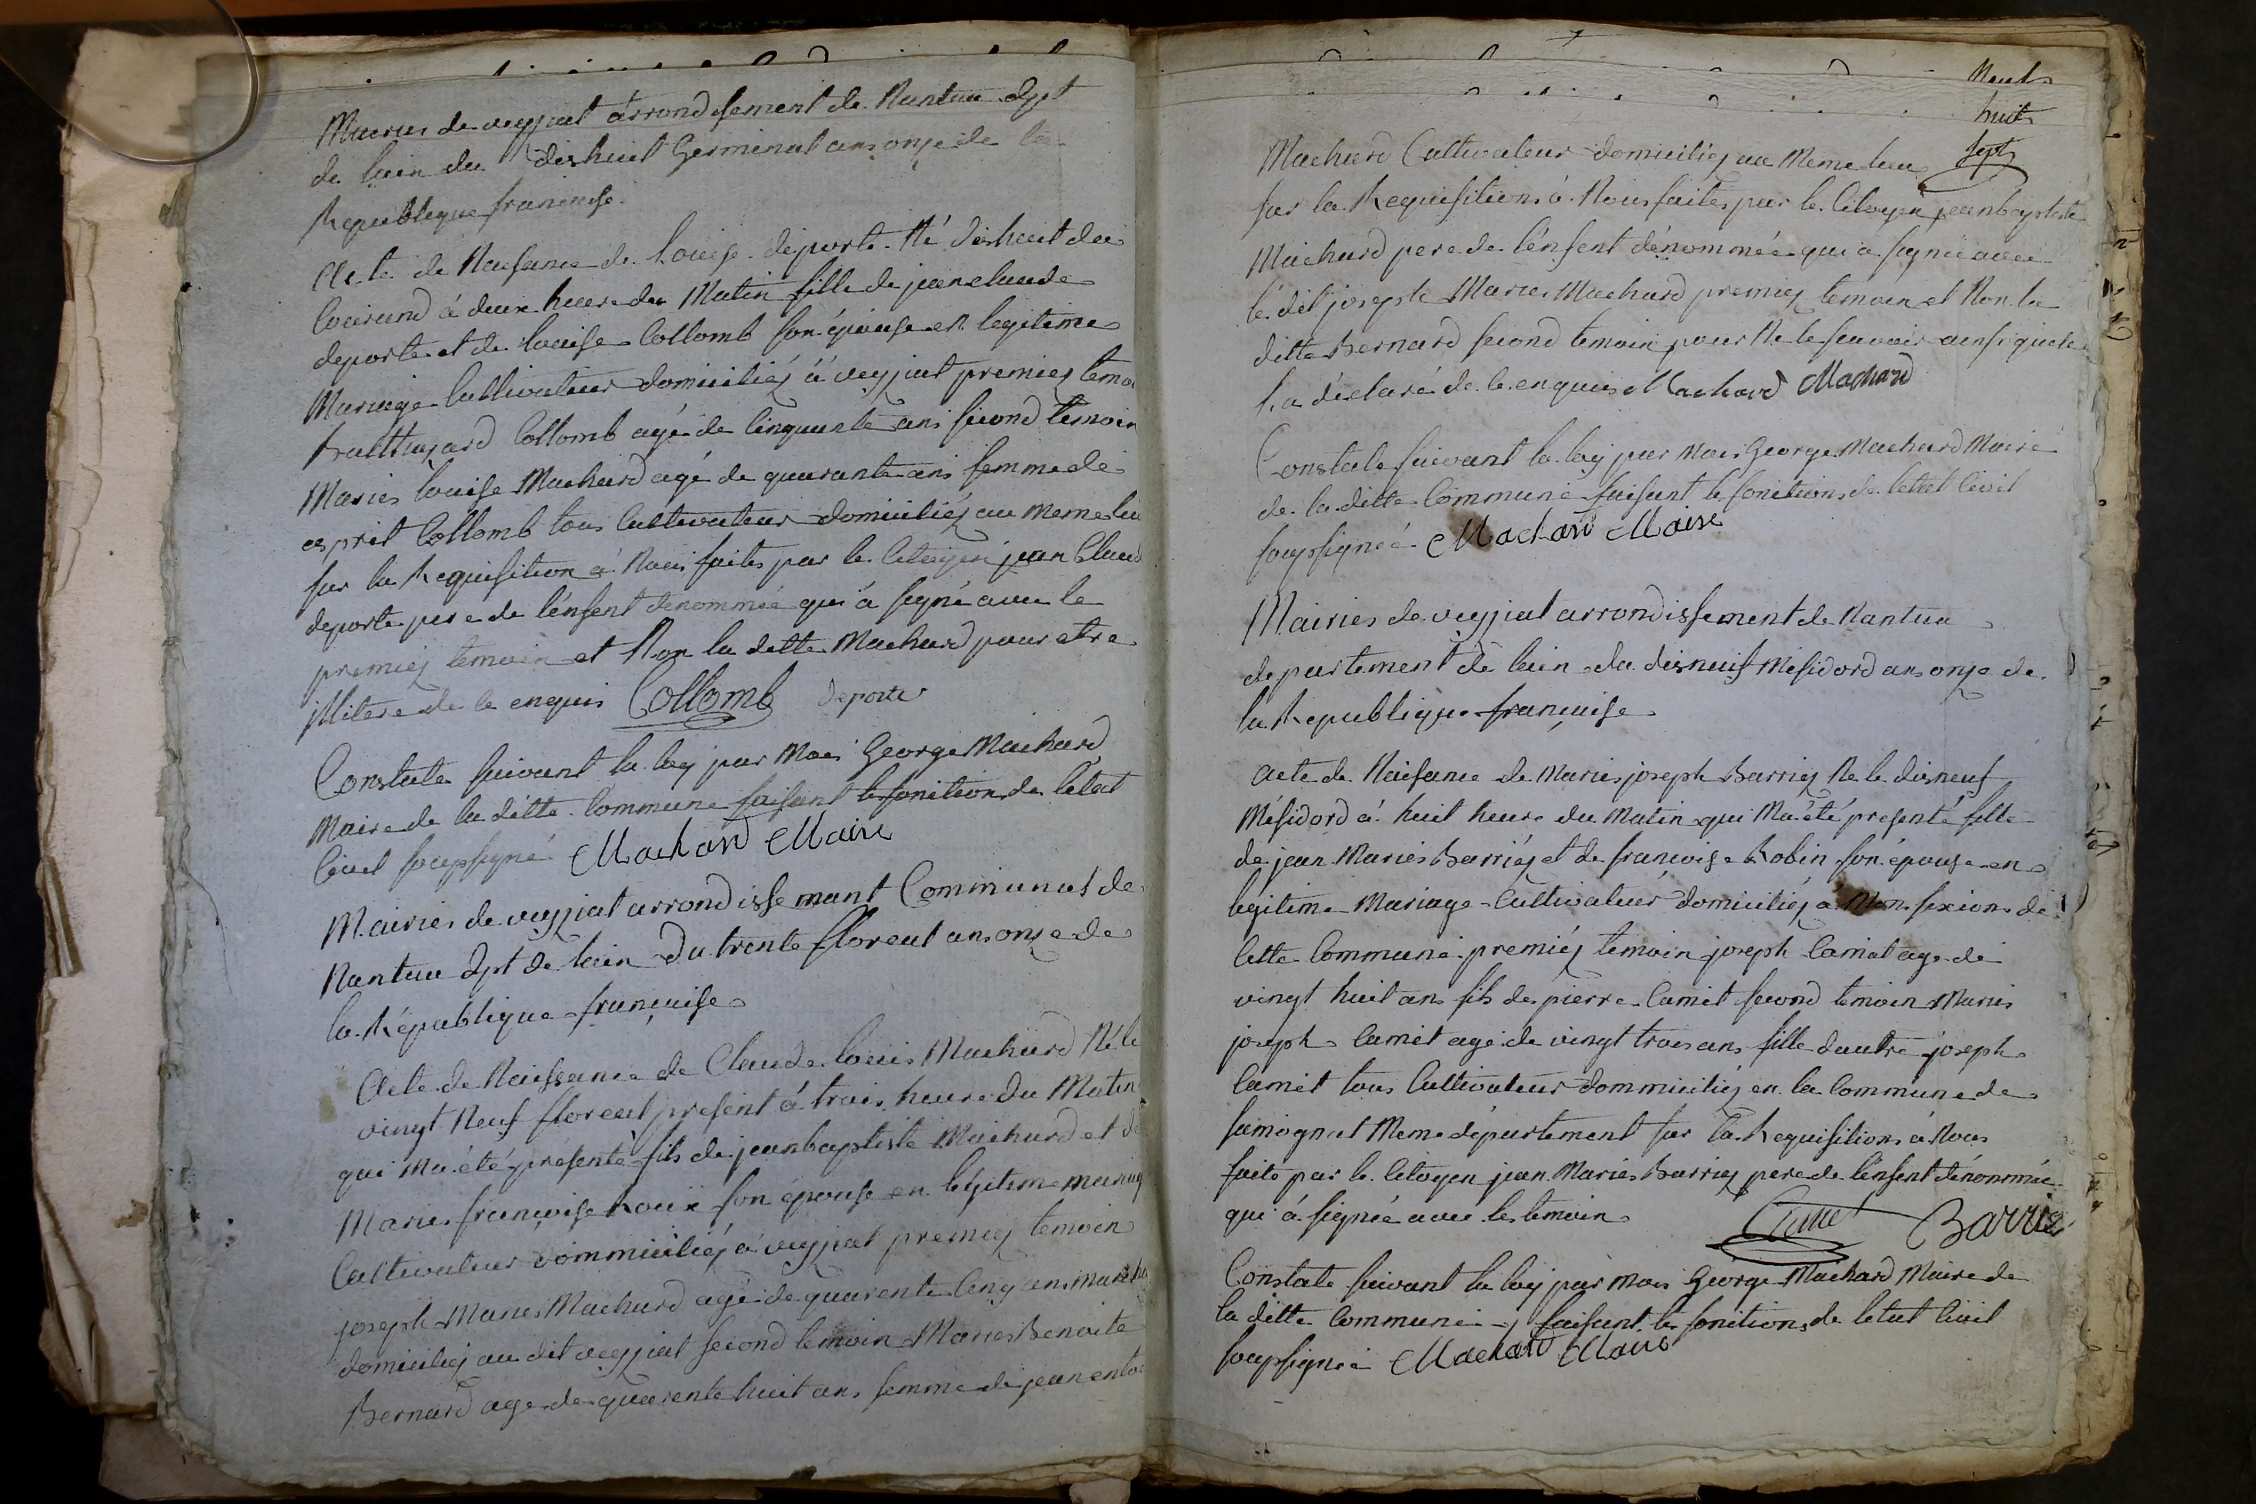 Mairies de veyziat arrondisement de Nantua dpt
de lain du dixhuit Germinal ans onze de la
Republique francaise.
Acte de Naisance de Louise deporte Né dixhuit du
Courand á deux heure du Matin fille de jean claude
deporte et de louise Collomb son épouse en legitime
Mariage Cultivateur domiciliéz á veyziat premiez temoi
balthazard Collomb agé de Cinquante ans second temoin
Maries louise Machard agé de quarante ans femme de
esprit Collomb tous Cultivateur domiciliéz au meme lieu
sur la Requisition á Nous faites par le Citoyen jean Claud
deporte pere de lénfent denommée qui á signé avec le
premiez temoin et Non la ditte Machard pour etre
illitere de ce enquis Collomb deporte
Constate suivant la loy par Moi George Machard
Maire de la ditte Commune faisant les fonctions de letat
Civil soussigné Machard Maire
Mairies de veyziat arrondissemant Communal de
Nantua dpt de lain du trente floreal ans onze de
la République francaise
Acte de Naissance de Claude louis Machard Né le
vingt Neuf floreal présent á trois heure du Matin
qui Ma été présenté fils de jean baptiste Machard et de
Maries francoise Roux son épouse en légitime mariag
Cultivateur dommiciliéz á veyziat premiez temoin
joseph Maries Machard agé de quarente Cinq ans
domiciliez au dit veyziat second temoin Maries Benoite
Bernard age de quarente huit ans femme de jean
Neuf
huit
sept
Machard Cultivateur domiciliéz au Meme lieu
sur la Requisitions á Nous faites par le Citoyen jean baptiste
Machard pere de lénfent dénommée qui a signée avec
le dit joseph Maries Machard premiez temoin et Non la
ditte Bernard second temoin pour Ne le scavoir ainsi quele
la déclaré de ce enquis Machard Machard
Constate suivant la loy par Moi George Machard Maire
de la ditte Commune faisant les fonctions de letat Civil
soussignée Machard Maire
Mairies de veyziat arrondissement de Nantua
departement de lain du disneuf Mésidord ans onze de
la Republique francaise
acte de Naisance de Maries joseph Barriez Né le disneuf
Mésidord á huit heure du Matin qui Ma été presenté fille
de jean Maries Barriéz et de francoise Robin son épouse en
legitime Mariage Cultivateur domiciliéz á sexion de
cette Commune premiéz temoin joseph Carnet age de
vingt huit ans fils de pierre Carnet second temoin Maries
joseph Carnet agé de vingt trois ans fille dautre joseph
Carnet tous Cultivateur dommiciliéz en la Commune de
samognat Meme département sur la Requisitions á Nous
faite par le Citoyen jean Maries Barriez pere de lénfent dénommée
qui á signée avec les temoin Barriez
Constate suivant la loy par moi George Machard Maire de
la ditte Commune faisant les fonctions de letat Civil
soussignée Machard Maire